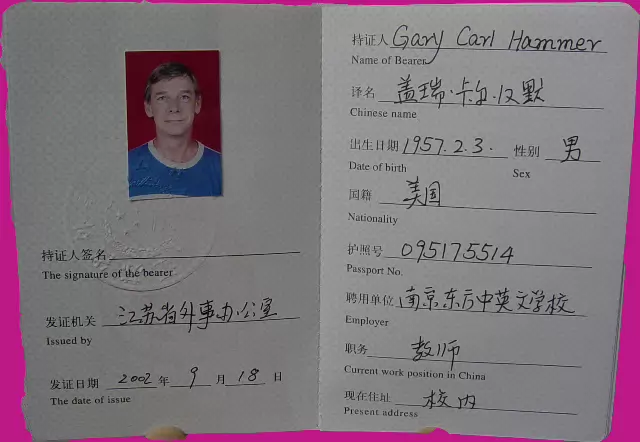 持证人签名
The signature of the bearer
发证机关 江苏省外事办公室
Issued by
发证日期 2002 年 9 月 18 日
The date of issue
持证人 Gary Carl Hammer
Name of Bearer
译名 盖瑞·卡尔·汉默
Chinese name
出生日期 1957.2.3. 性别 男
Date of birth Sex
国籍 美国
Nationality
护照号 095175514
Passport No.
聘用单位 南京东方中英文学校
Employer
职务 教师
Current work position in China
现在住址 校内
Present address